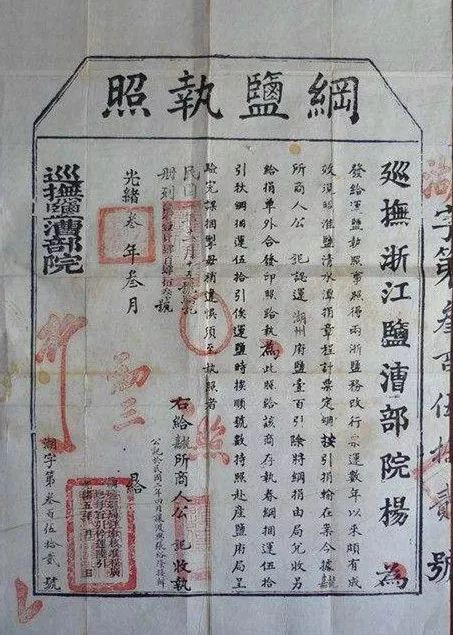 綱鹽執照
字第叁百伍拾貳號
巡撫浙江鹽漕部院楊 為
發給運鹽執照事照得兩浙鹽務改行票運數年以來頗有成
效現照淮鹽清水潭捐章程計票定綱按引捐輸在案今據
所商人公 記認運湖州府鹽壹百引除將綱捐由局兌收另
給捐單外合發印照給執為此照給該商存執春綱捆運伍拾
引秋綱捆運伍拾引俟運鹽時挨順號數持照赴産鹽局呈
驗完課捆掣毋稍違悞須至執照者
右給 所商人公 記收執
光緒叁年叁月
巡撫鹽漕部院
湖字第叁百伍拾貳號